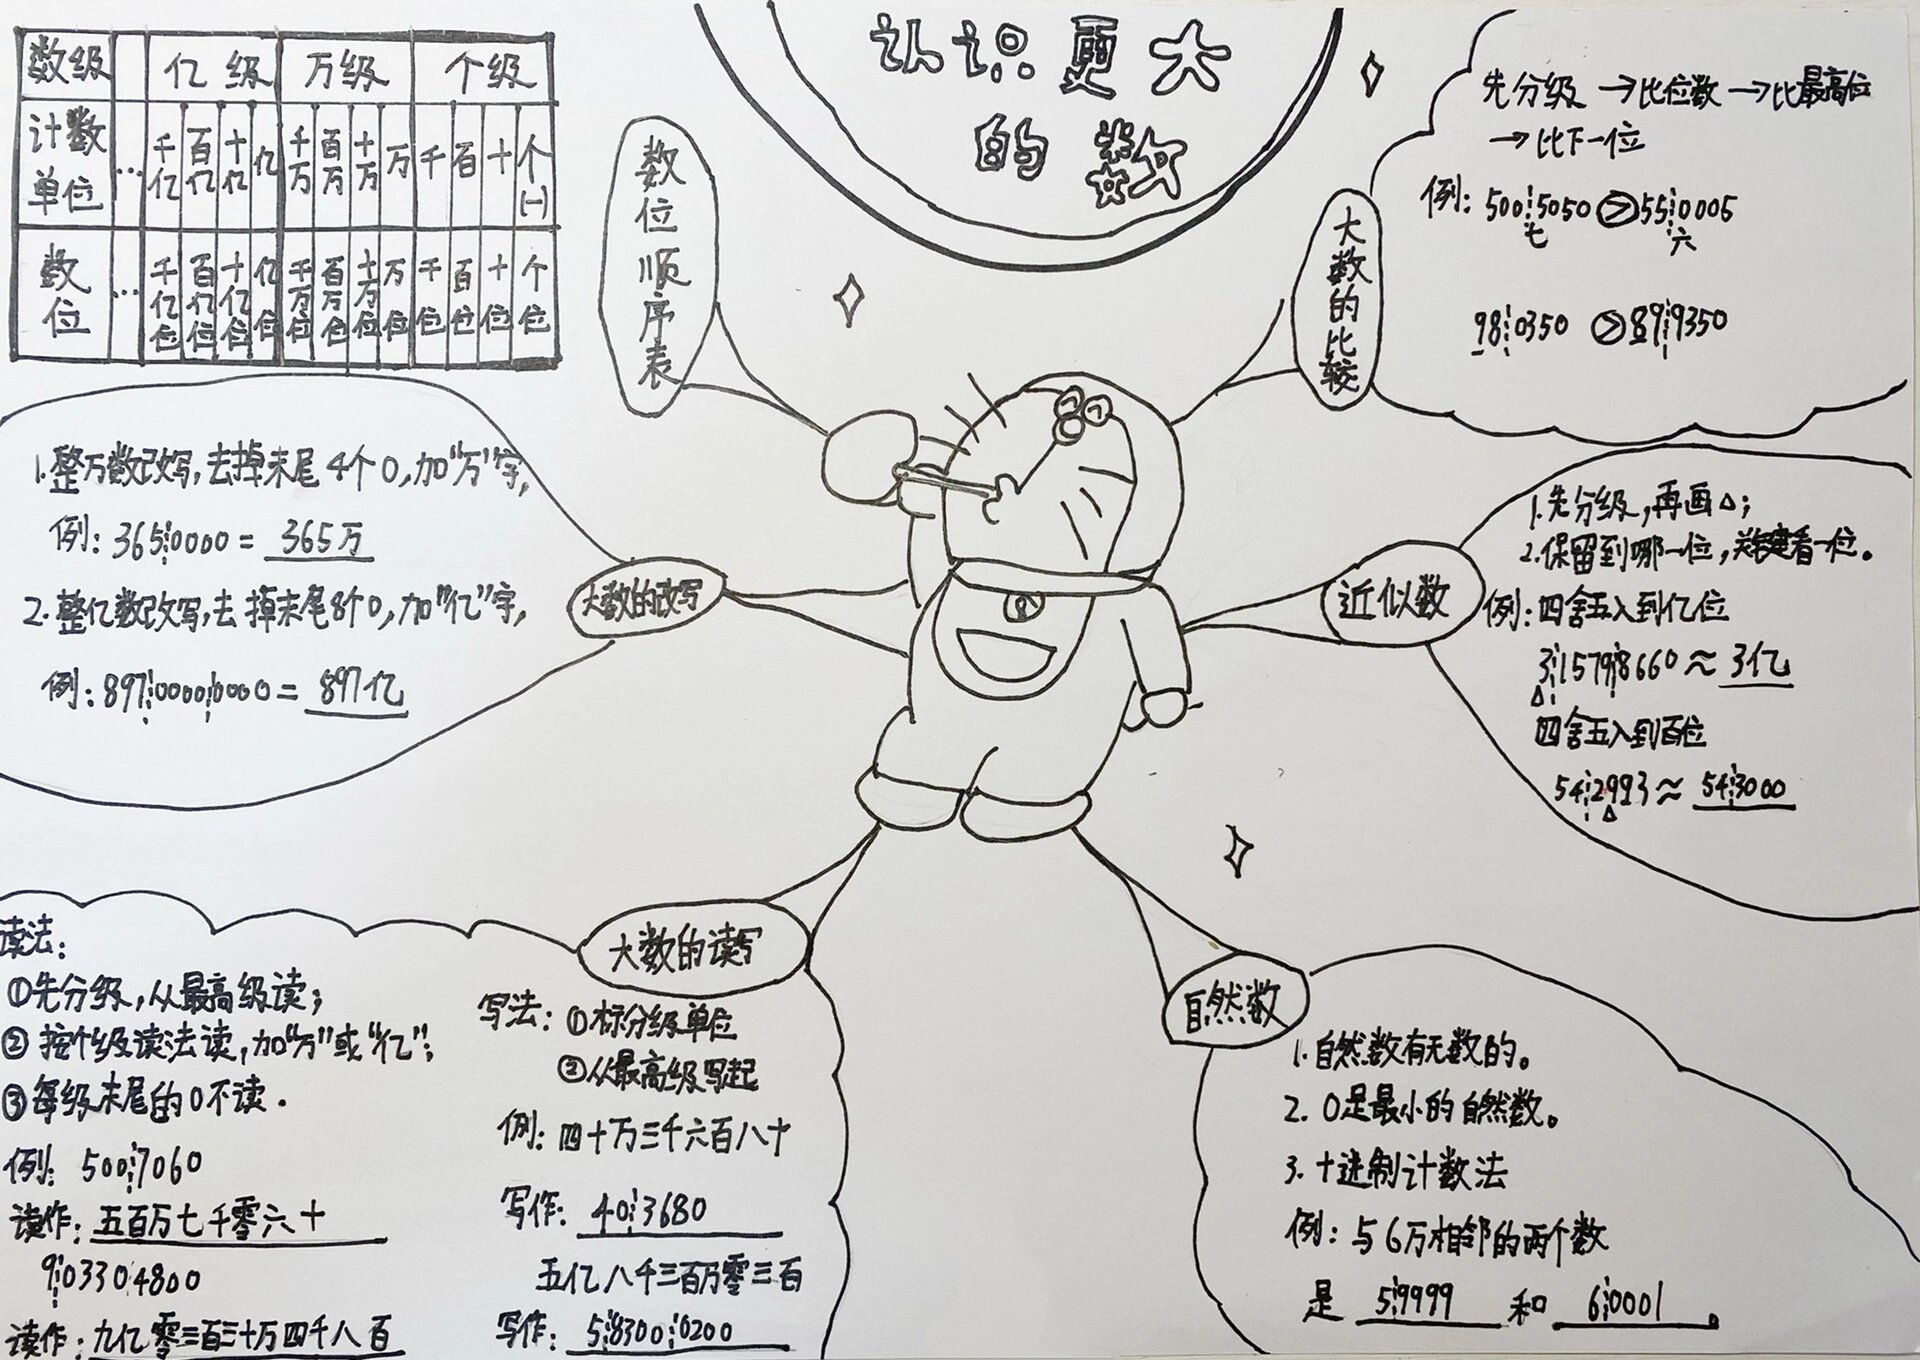 认识更大
的数
数级 亿级 万级 个级
计数单位 … 千亿 百亿 十亿 亿 千万 百万 十万 万 千 百 十 个(一)
数位 … 千亿位 百亿位 十亿位 亿位 千万位 百万位 十万位 万位 千位 百位 十位 个位
数位顺序表
大数的比较
先分级→比位数→比最高位
→比下一位
例: 500¦5050>55¦0005
七 六
98¦0350>89¦9350
大数的改写
1.整万数改写,去掉末尾4个0,加“万”字,
例: 365¦0000=365万
2.整亿数改写,去掉末尾8个0,加“亿”字,
例: 897¦0000¦0000=897亿
近似数
1.先分级,再画△;
2.保留到哪一位,关键看一位。
例:四舍五入到亿位
3¦1579¦8660≈3亿
△
四舍五入到百位
54¦2993≈54¦3000
△
大数的读写
读法:
①先分级,从最高级读;
②按个级读法读,加“万”或“亿”;
③每级末尾的0不读.
例: 500¦7060
读作:五百万七千零六十
9¦0330¦4800
读作:九亿零三百三十万四千八百
写法:①标分级单位
②从最高级写起
例:四十万三千六百八十
写作: 40¦3680
五亿八千三百万零三百
写作: 5¦8300¦0200
自然数
1.自然数有无数的。
2. 0是最小的自然数。
3.十进制计数法
例:与6万相邻的两个数
是 5¦9999 和 6¦0001。